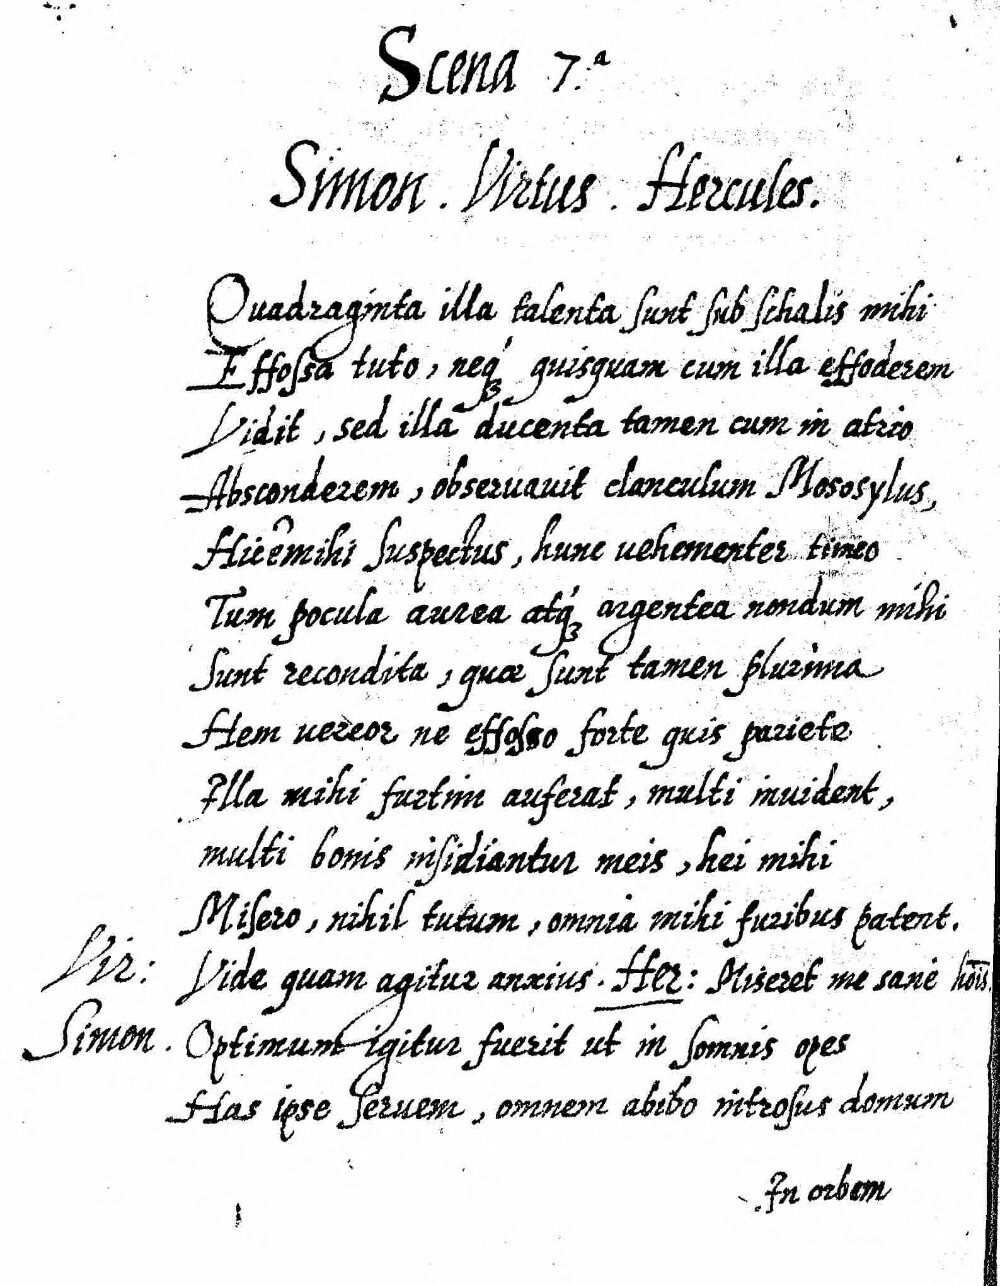 Scena 7.ª
Simon . Virtus . Hercules.
Quadraginta illa talenta sunt sub schalis mihi
Effossa tuto, neq́ꝫ quisquam cum illa effoderem
Vidit, sed illa ducenta tamen cum in atrio
Absconderem, obseruauit clanculum Mososylus,
Hic ẽ mihi suspectus, hunc uehementer timeo
Tum pocula aurea atq́ꝫ argentea nondum mihi
Sunt recondita, quæ sunt tamen plurima
Hem uereor ne effosso forte quis pariete
Illa mihi furtim auferat, multi inuident,
multi bonis insidiantur meis, hei mihi
Misero, nihil tutum, omnia mihi furibus patent.
Vir: Vide quam agitur anxius. Her: Miseret me sanè hoīs.
Simon. Optimum igitur fuerit ut in somnis opes
Has ipse seruem, omnem abibo introsus domum
In orbem